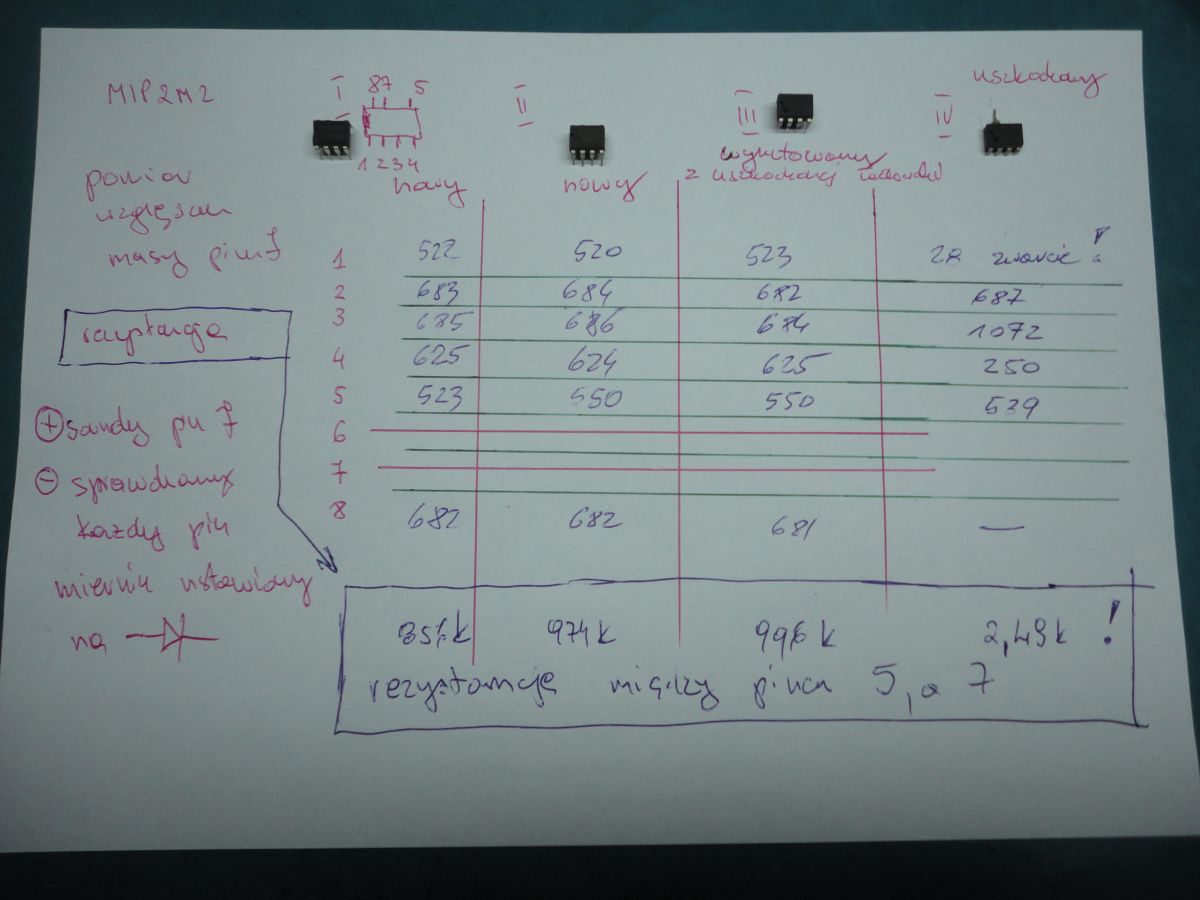 MIP2M2
I 87 5
II
III
IV uszkodzony
1 2 3 4
nowy
nowy
wylutowany
z uszkodzonej
pomiar
względem
masy pinu 7
1 522 520 523 28 zwarcie!
2 683 684 682 687
3 685 686 684 1072
4 625 624 625 250
5 523 550 550 539
6
7
8 682 682 681 —
rezystancja
+ sondy pin 7
- sprawdzamy
każdy pin
miernik ustawiony
na
974k 996k 2,49k !
rezystancja między pinem 5, a 7